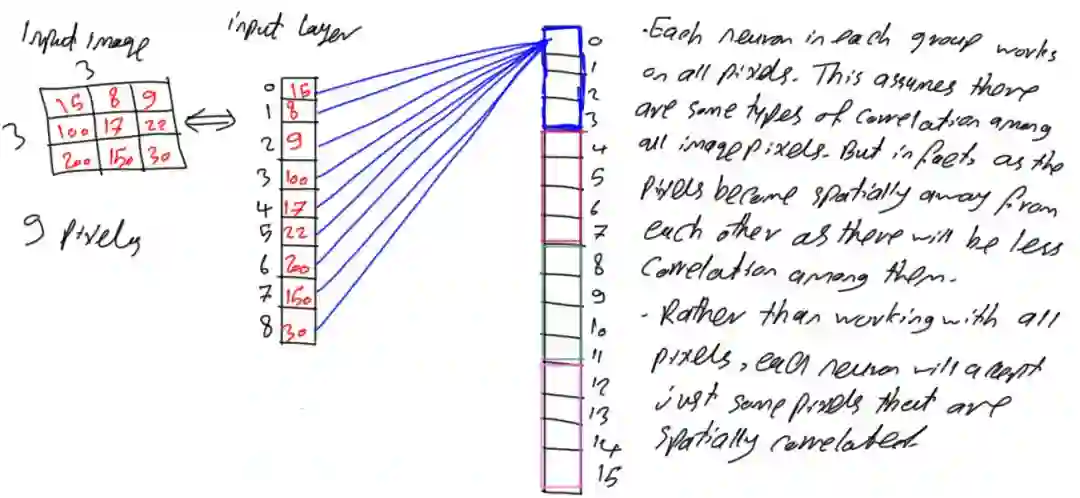 Input image
3
3
15 8 9
100 17 22
200 150 30
9 pixels
input Layer
0 15
1 8
2 9
3 100
4 17
5 22
6 200
7 150
8 30
0
1
2
3
4
5
6
7
8
9
10
11
12
13
14
15
·Each neuron in each group works
on all pixels. This assumes there
are some types of correlation among
all image pixels. But in facts as the
pixels become spatially away from
each other as there will be less
Correlation among them.
· Rather than working with all
pixels, each neuron will accept
just some pixels that are
spatially correlated